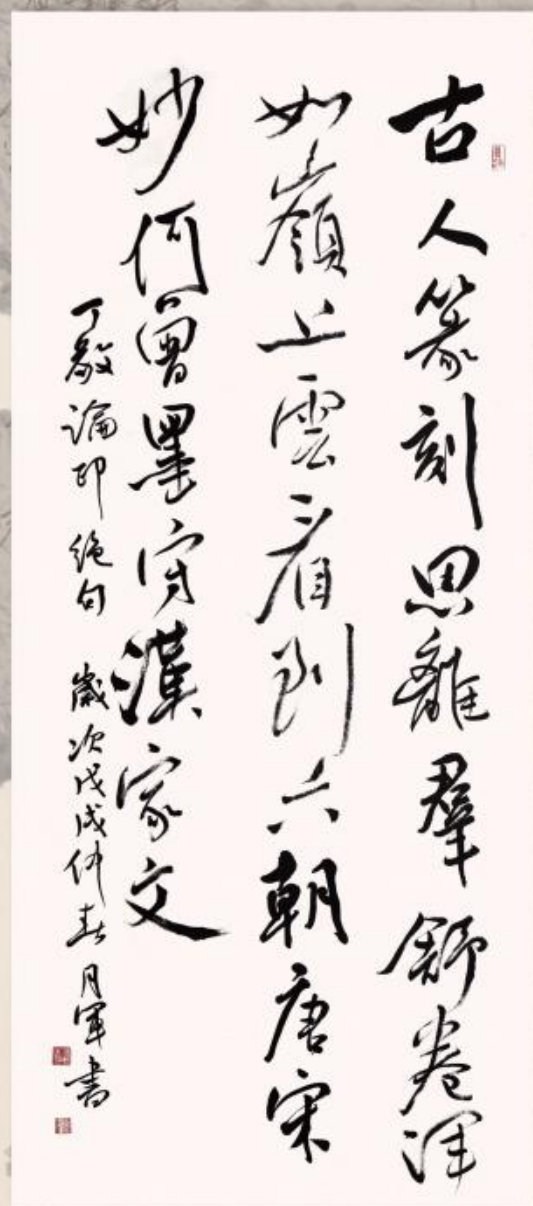 古人篆刻思離羣舒卷渾
如嶺上雲看到六朝唐宋
妙何曾墨守漢家文
丁敬論印絕句 歲次戊戌仲春月軍書